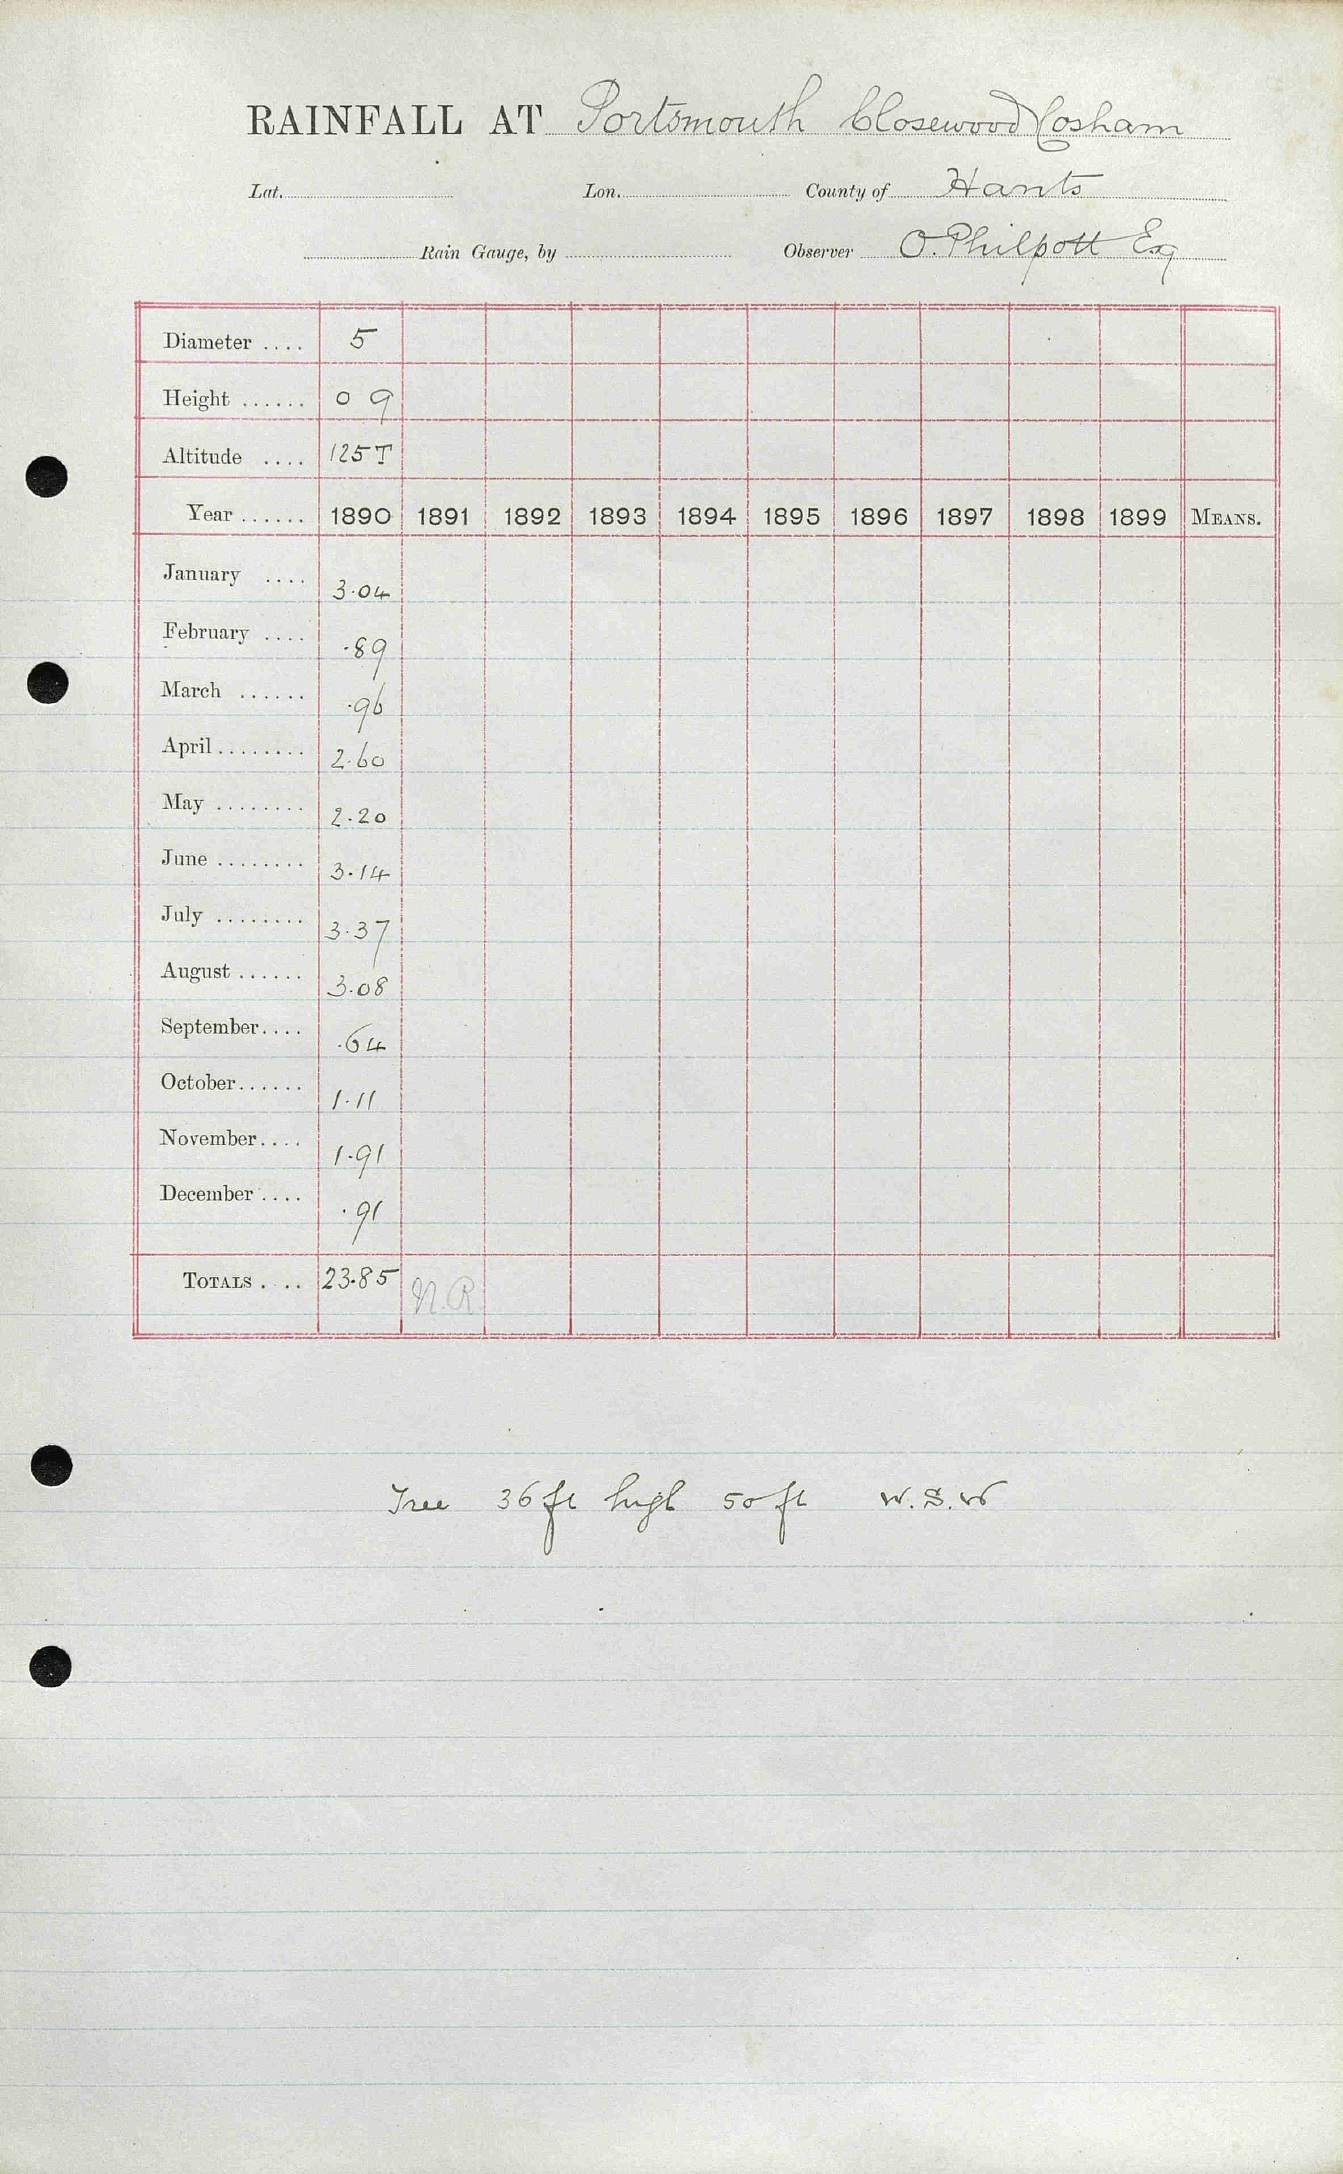 RAINFALL AT Portsmouth Closewood Cosham
Lat. Lon. County of Hants
Rain Gauge, by Observer O. Philpott Esq
Diameter .... 5
Height ...... 0 9
Altitude .... 125 T
Year ...... 1890 1891 1892 1893 1894 1895 1896 1897 1898 1899 MEANS.
January .... 3.04
February .... .89
March ...... .96
April ........ 2.60
May ........ 2.20
June ........ 3.14
July ........ 3.37
August ...... 3.08
September.... .64
October...... 1.11
November.... 1.91
December .... .91
TOTALS .... 23.85 N.R.
Tree 36 ft high 50 ft W.S.W